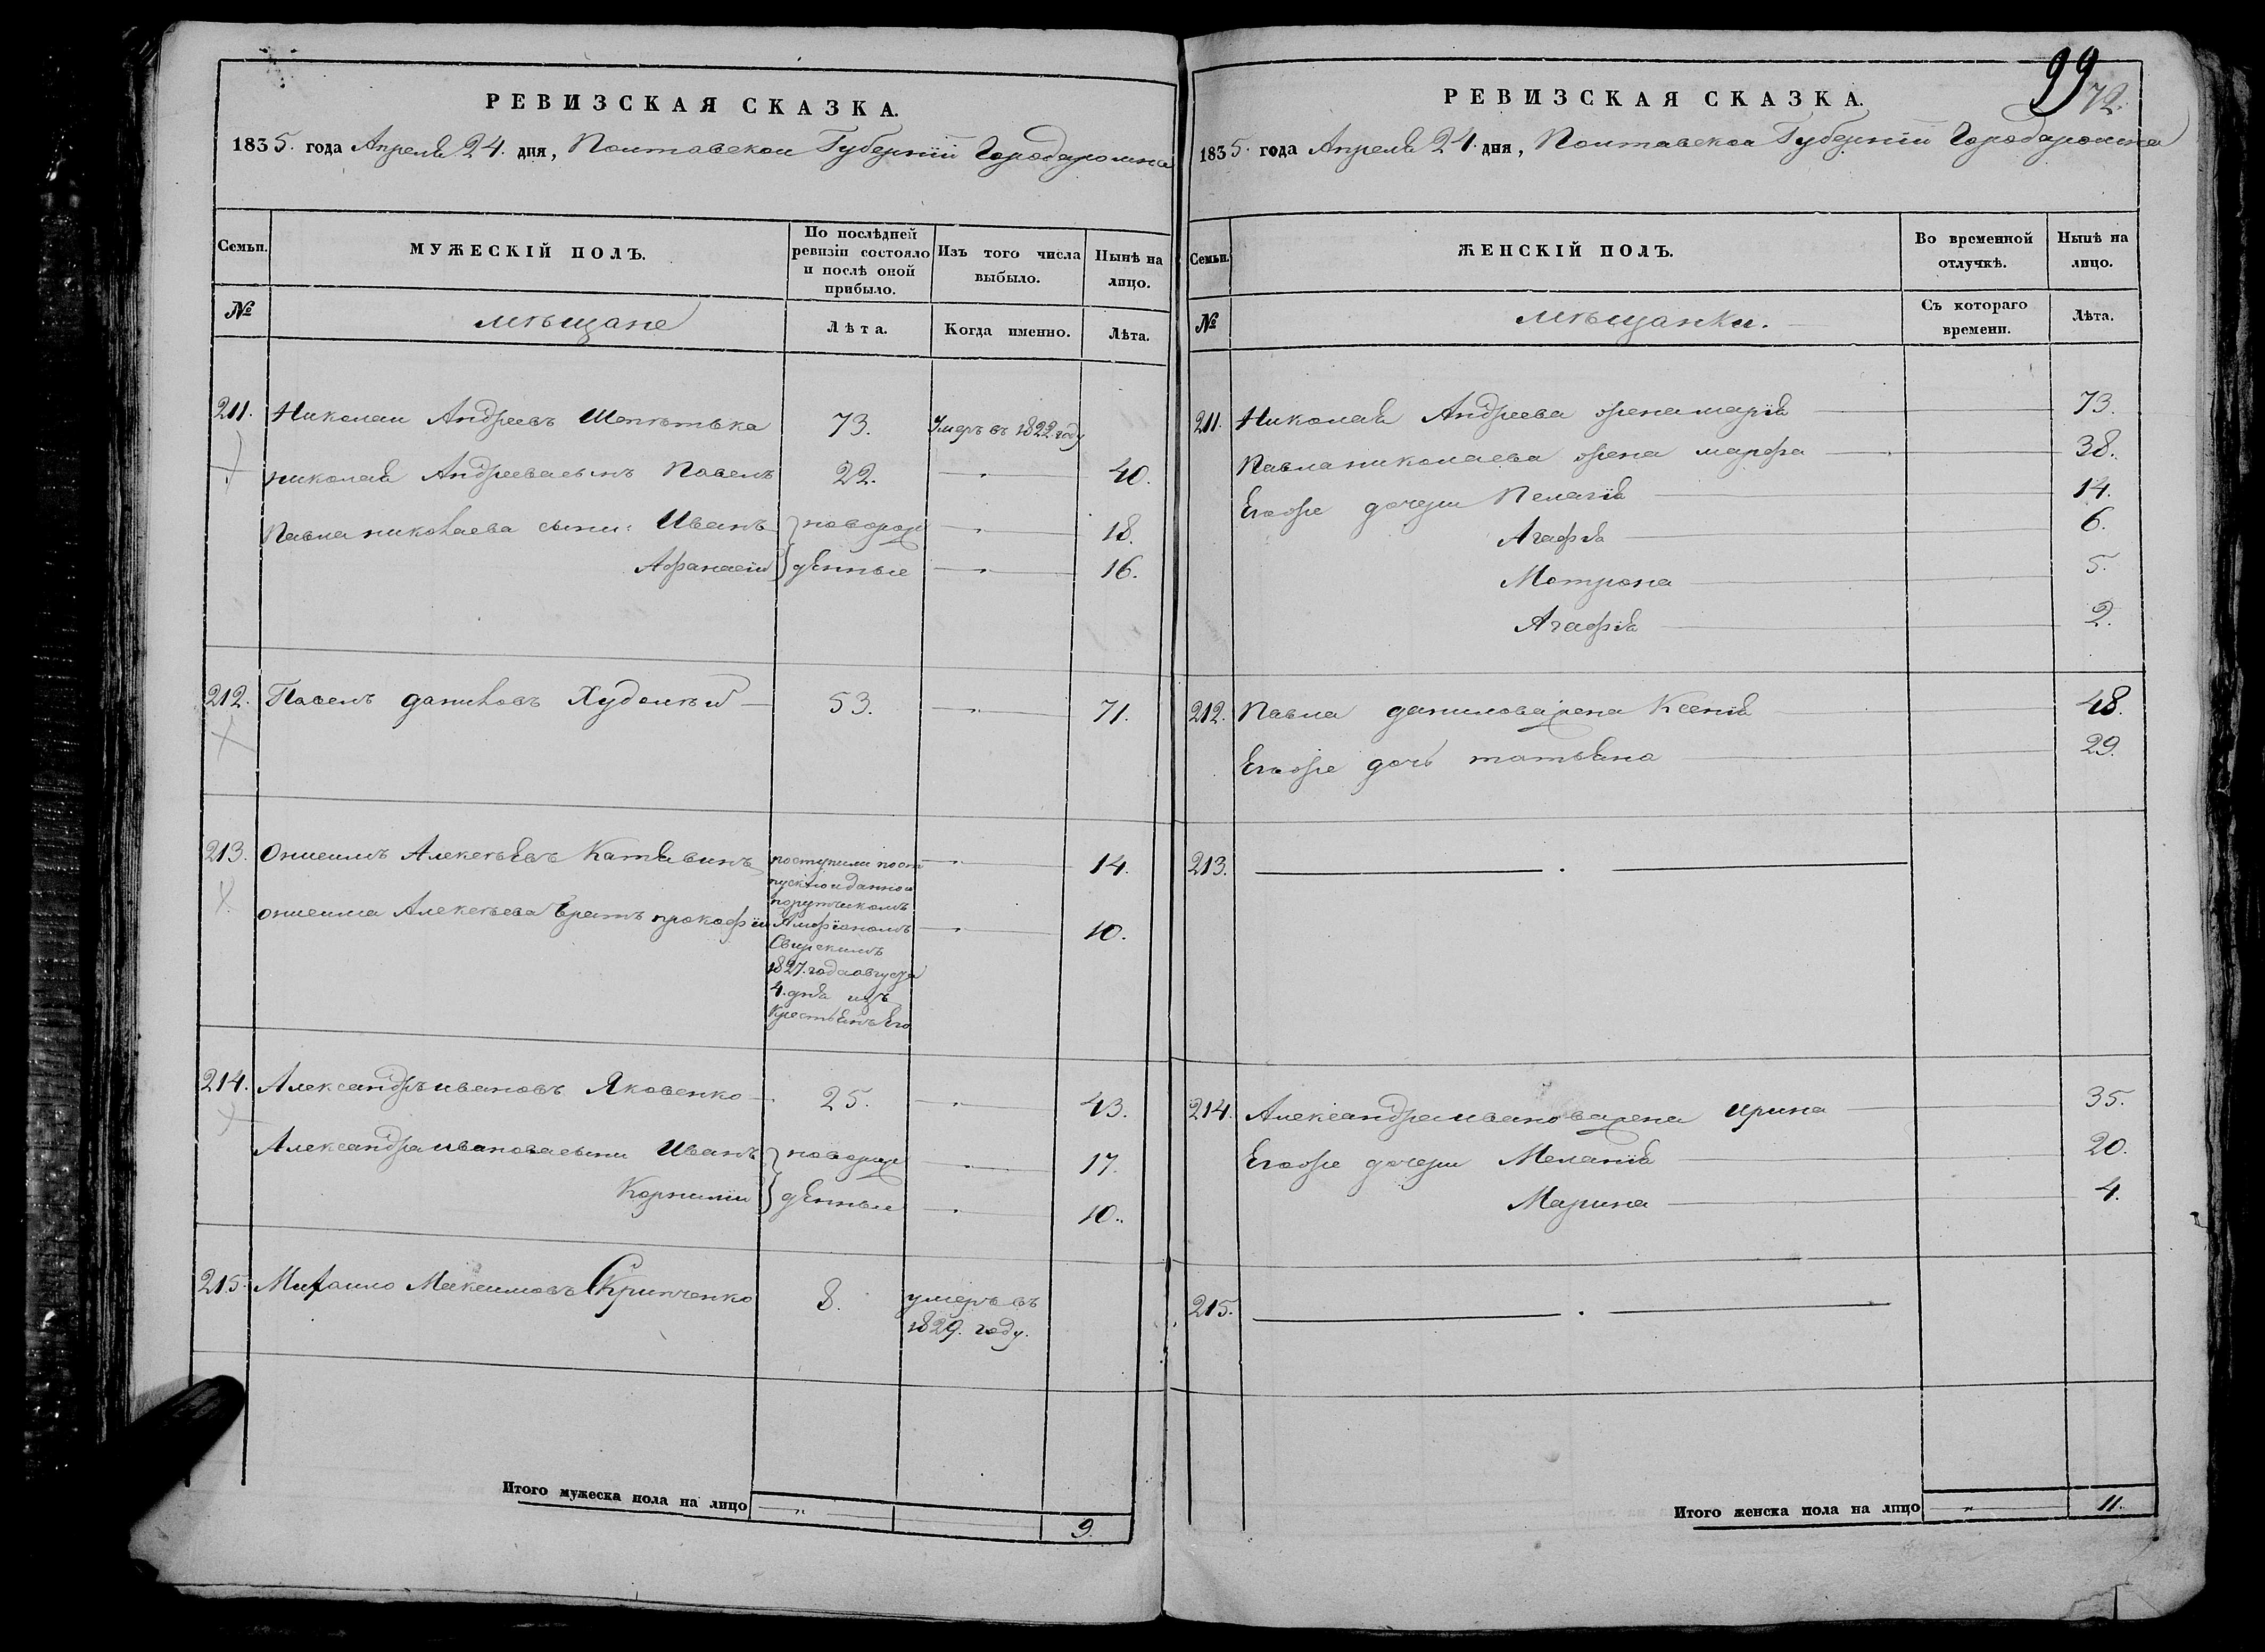 РЕВИЗСКАЯ СКАЗКА.
1835. года Апреля 24. дня, Полтавской Губернїи Города ромна
Семьи.
МУЖЕСКІЙ ПОЛЪ.
По послѣдней ревизіи состояло и послѣ оной прибыло.
Изъ того числа выбыло.
Нынѣ на лицо.
№
мѣщане
Лѣта.
Когда именно.
Лѣта.
211. Николай Андреевъ 73. Умеръ въ 1822 году
николая Андреева сынъ Павелъ 22. 40.
Павла николаева сыны: Иванъ новорож 18.
Афанасїй денные 16.
212. Павелъ даниловъ Худолѣй 53. 71.
213. Онисимъ Алексѣевъ поступили по от 14.
пускной данной
порутчикомъ
онисима Алексѣева братъ прокофїй Амфїаномъ 10.
Свирскимъ
1827. года августа
4. дня изъ
крестьянъ Его
214. Александръ ивановъ Яковенко 25. 43.
Александра иванова сыны Иванъ новорож 17.
Корнилїй денные 10.
215. Михайло Максимовъ Скрипченко 8. умеръ въ
1829. году.
Итого мужеска пола на лицо 9.
99
72.
РЕВИЗСКАЯ СКАЗКА.
1835. года Апреля 24. дня, Полтавской Губернїи Города ромна
Семьи.
ЖЕНСКІЙ ПОЛЪ.
Во временной отлучкѣ.
Нынѣ на лицо.
№
мѣщанки.
Съ котораго времени.
Лѣта.
211. Николая Андреева жена марїя 73.
Павла николаева жена марфа 38.
Егоже дочери Пелагїя 14.
Агафїя 6.
Мотрона 5.
Агафїя 2.
212. Павла данилова жена Ксенїя 48.
Егоже дочь татьяна 29.
213.
214. Александра иванова жена ирина 35.
Егоже дочери Меланїя 20.
Марина 4.
215.
Итого женска пола на лицо 11.